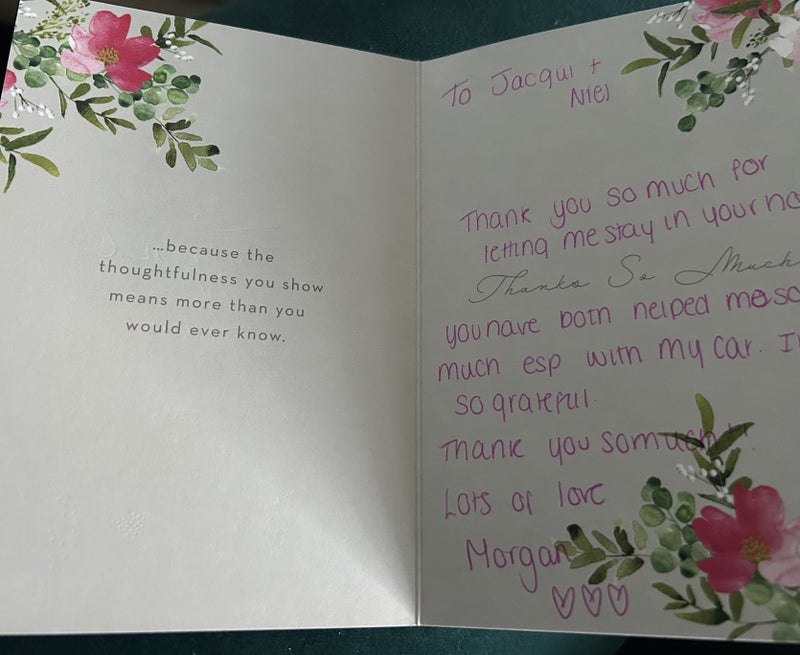 ...because the
thoughtfulness you show
means more than you
would ever know.
To Jacqui +
Niel
Thank you so much for
letting me stay in your
Thanks So Much
you have both helped me so
much esp with my car.
so grateful.
Thank you so much !!
Lots of love
Morgan